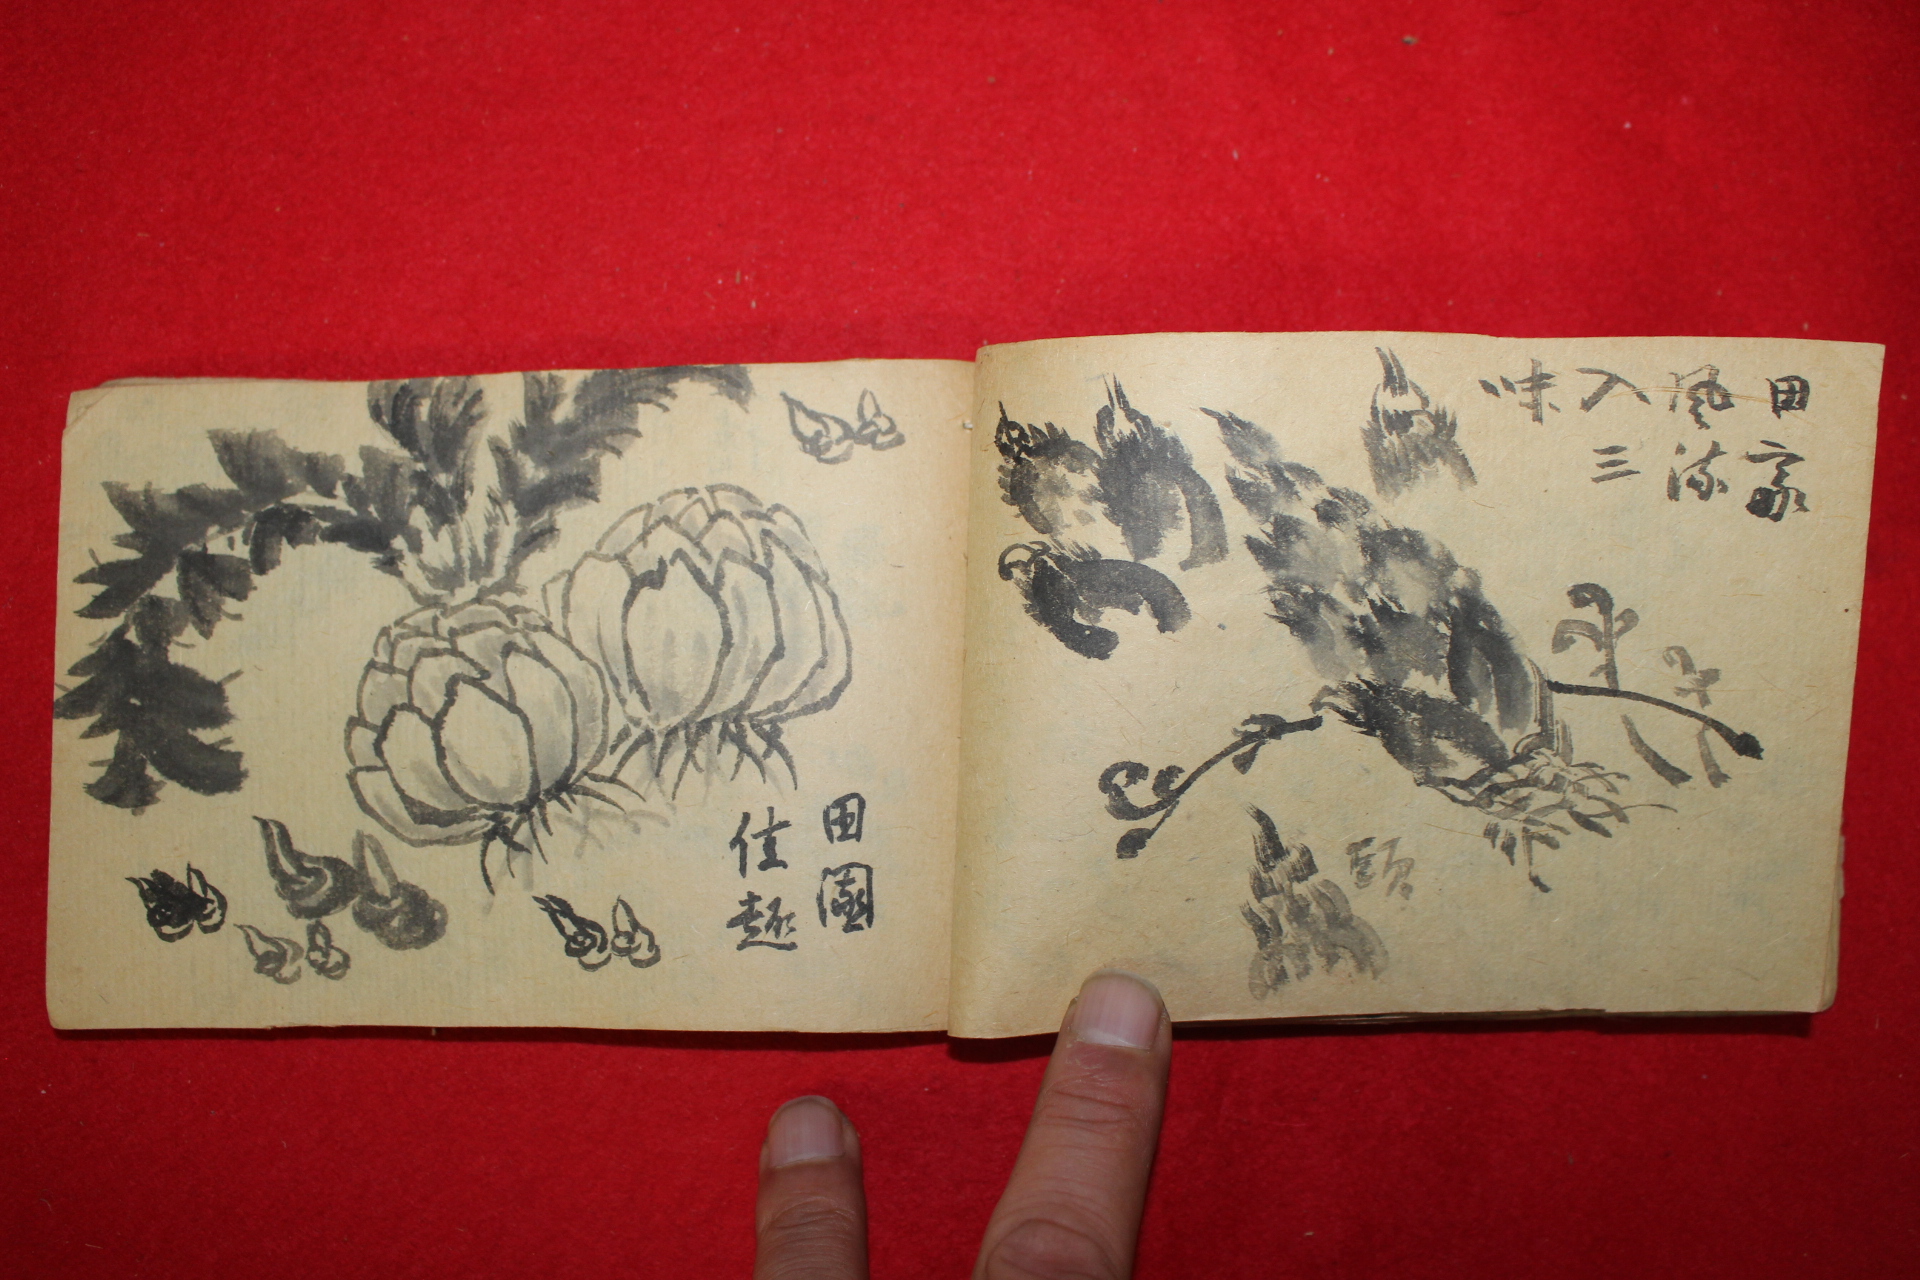 田家
風流
入三
味
頭
田園
佳趣